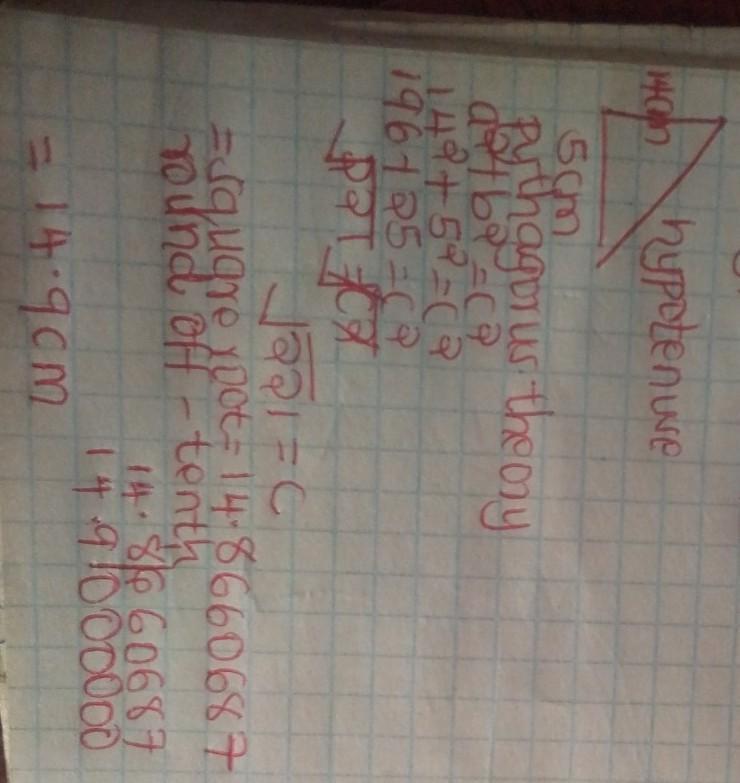 14cm
hypotenuse
5cm
pythagorus theory
a²+b²=c²
14²+5²=c²
196+25=c²
√221=√c²
√221=c
=square root=14.8660687
round off - tenth
14.8660687
14.9000000
=14.9cm